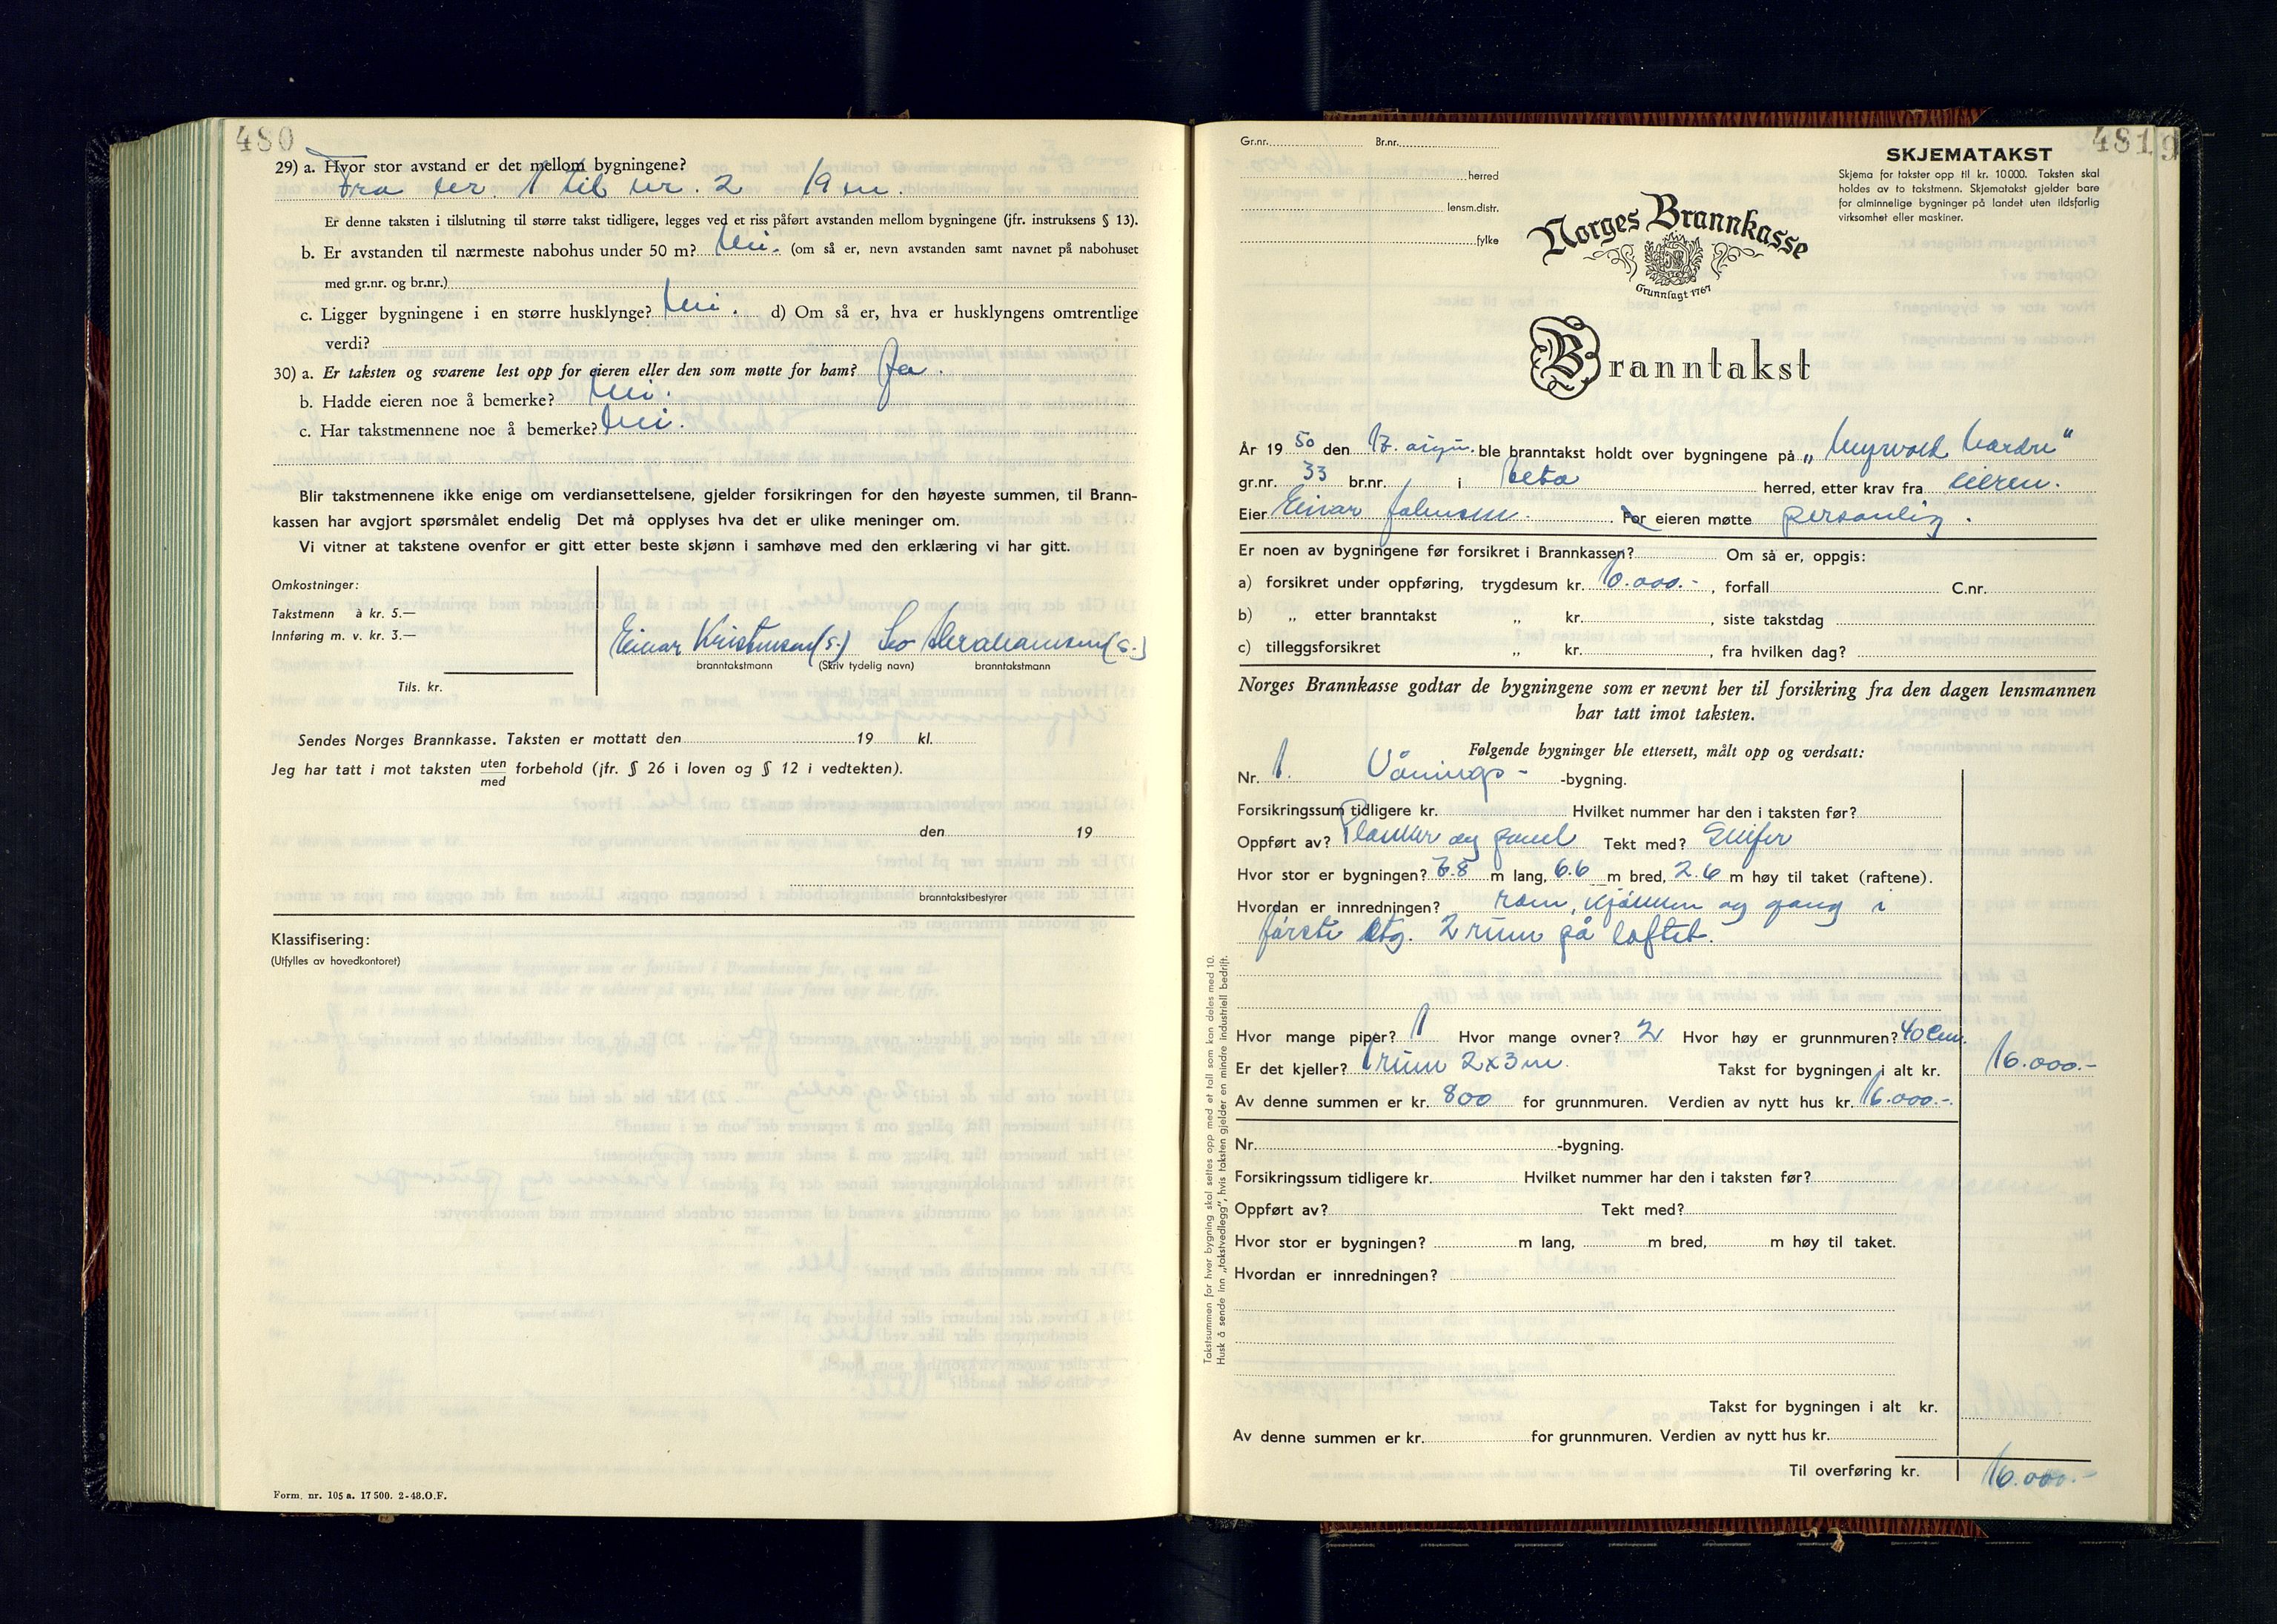 480
29) a. Hvor stor avstand er det mellom bygningene?
Fra nr. 1 til nr. 2 19 m.
Er denne taksten i tilslutning til større takst tidligere, legges ved et riss påført avstanden mellom bygningene (jfr. instruksens § 13).
b. Er avstanden til nærmeste nabohus under 50 m? Nei. (om så er, nevn avstanden samt navnet på nabohuset
med gr.nr. og br.nr.)
c. Ligger bygningene i en større husklynge? Nei. d) Om så er, hva er husklyngens omtrentlige
verdi?
30) a. Er taksten og svarene lest opp for eieren eller den som møtte for ham? Ja.
b. Hadde eieren noe å bemerke? Nei.
c. Har takstmennene noe å bemerke? Nei.
Blir takstmennene ikke enige om verdiansettelsene, gjelder forsikringen for den høyeste summen, til Brann-
kassen har avgjort spørsmålet endelig Det må opplyses hva det er ulike meninger om.
Vi vitner at takstene ovenfor er gitt etter beste skjønn i samhøve med den erklæring vi har gitt.
Omkostninger:
Takstmenn à kr. 5.—
Innføring m. v. kr. 3.—
Einar Kristensen (s.) Leo Abrahamsen (s.)
branntakstmann (Skriv tydelig navn) branntakstmann
Tils. kr.
Sendes Norges Brannkasse. Taksten er mottatt den 19 kl.
Jeg har tatt i mot taksten uten med forbehold (jfr. § 26 i loven og § 12 i vedtekten).
den 19
branntakstbestyrer
Klassifisering:
(Utfylles av hovedkontoret)
Form. nr. 105 a. 17 500. 2-48. O. F.
481
9
Gr.nr. Br.nr.
herred
lensm.distr.
fylke
SKJEMATAKST
Skjema for takster opp til kr. 10000. Taksten skal
holdes av to takstmenn. Skjematakst gjelder bare
for alminnelige bygninger på landet uten ildsfarlig
virksomhet eller maskiner.
Norges Brannkasse
Grunnlagt 1767
Branntakst
År 1950 den 17. ble branntakst holdt over bygningene på „Myrvold Nordre"
gr.nr. 33 br.nr. i herred, etter krav fra eieren.
Eier Einar Johnsen. For eieren møtte personlig.
Er noen av bygningene før forsikret i Brannkassen? Om så er, oppgis:
a) forsikret under oppføring, trygdesum kr. 10.000.-, forfall C.nr.
b) „ etter branntakst „ kr. , siste takstdag
c) tilleggsforsikret „ kr. , fra hvilken dag?
Norges Brannkasse godtar de bygningene som er nevnt her til forsikring fra den dagen lensmannen
har tatt imot taksten.
Følgende bygninger ble ettersett, målt opp og verdsatt:
Nr. 1. Vånings- -bygning.
Forsikringssum tidligere kr. Hvilket nummer har den i taksten før?
Oppført av? Planker og panel Tekt med? Skifer
Hvor stor er bygningen? 7.8 m lang, 6.6 m bred, 2.6 m høy til taket (raftene).
Hvordan er innredningen? rom, kjøkken og gang i
første etg. 2 rum på loftet.
Hvor mange piper? 1 Hvor mange ovner? 2 Hvor høy er grunnmuren? 40 cm.
Er det kjeller? 1 rum 2x3 m. Takst for bygningen i alt kr. 16.000.-
Av denne summen er kr. 800 for grunnmuren. Verdien av nytt hus kr. 16.000.-.
Nr. -bygning.
Forsikringssum tidligere kr. Hvilket nummer har den i taksten før?
Oppført av? Tekt med?
Hvor stor er bygningen? m lang, m bred, m høy til taket.
Hvordan er innredningen?
Takst for bygningen i alt kr.
Av denne summen er kr. for grunnmuren. Verdien av nytt hus kr.
Til overføring kr. 16.000.-
Takstsummen for hver bygning skal settes opp med et tall som kan deles med 10.
Husk å sende inn „takstvedlegg", hvis taksten gjelder en mindre industriell bedrift.